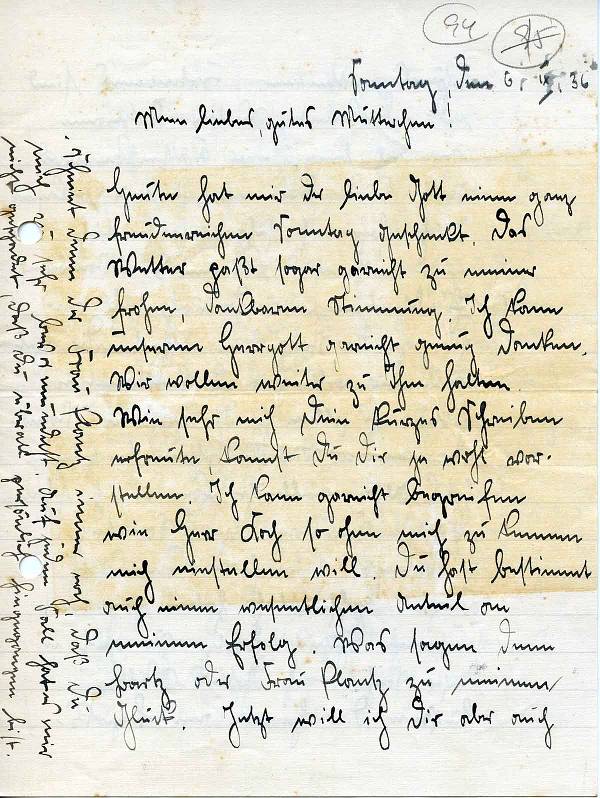 94
85
Sonntag, den 6. IX. 36
Mein liebes, gutes Mütterchen!
Heute hat mir der liebe Gott einen ganz
freudenreichen Sonntag geschenkt. Das
Wetter paßt sogar garnicht zu meiner
frohen, dankbaren Stimmung. Ich kann
unserem Herrgott garnicht genug danken.
Wir wollen weiter zu Ihm halten.
Wie sehr mich Dein kurzes Schreiben
erfreute, kannst Du Dir ja wohl vor-
stellen. Ich kann garnicht begreifen
wie Herr Koch so ohne mich zu kennen
mich einstellen will. Du hast bestimmt
auch einen wesentlichen Anteil an
meinem Erfolg. Was sagen denn
oder Frau Plantz zu meinem
Glück. Jetzt will ich Dir aber auch
Scheint denn der Frau Plantz immer noch, daß Du
mich zu sehr bemundest. Auf jeden Fall hat es mir
nicht geschadet, daß Du überall persönlich hingegangen bist.